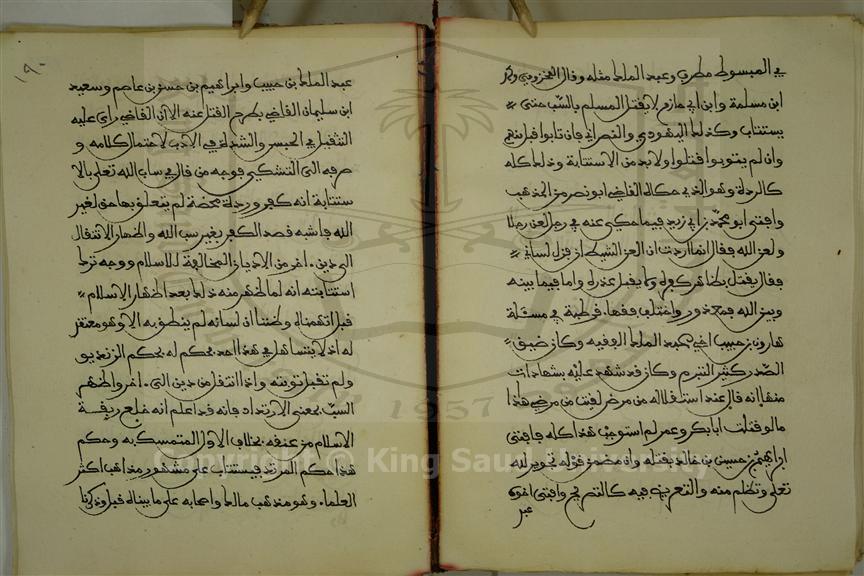 في المبسوط مطرف وعبد الملك مثله وقال المخزومي ومحمد
ابن مسلمة وابن أبي حازم لا يقتل المسلم بالسب حتى
يستتاب وكذلك اليهودي والنصراني فإن تابوا قبل منهم
وان لم يتوبوا قتلوا ولا بد من الاستتابة وذلك كله
كالردة وهو الذي حكاه القاضي ابو نصر من المذهب
وافتى ابو محمد بن ابي زيد فيما حكى عنه في رجل لعن رجلا
ولعن الله فقال انما اردت ان العن الشيطان فزل لساني
فقال يقتل بظاهر كفره ولا يقبل عذره واما فيما بينه
وبين الله فمعذور واختلف فقهاء قرطبة في مسئلة
هارون بن حبيب اخي عبد الملك الفقيه وكان ضيق
الصدر كثير التبرم وكان قد شهد عليه بشهادات
منها انه قال عند استقلاله من مرض لقيت من مرضي هذا
ما لو قتلت ابا بكر وعمر لم استوجب هذا كله فافتى
ابراهيم بن حسين بن خالد بقتله وان مضمن قوله تجوير لله
تعلى وتظلم منه والتعريض فيه كالتصريح وافتى اخوه
عبد
١٩٠
عبد الملك بن حبيب وابراهيم بن حسن بن عاصم وسعيد
ابن سليمان القاضي بطرح القتل عنه الا ان القاضي راى عليه
التثقيل في الحبس والشدة في الادب لاحتمال كلامه و
صرفه الى التشكي فوجه من قال في ساب الله تعلى بالا
ستتابة انه كفر وردة محضة لم يتعلق بها حق لغير
الله فاشبه قصد الكفر بغير سب الله واظهار الانتقال
الى دين اخر من الاديان المخالفة للاسلام ووجه ترك
استتابته انه لما ظهر منه ذلك بعد اظهار الاسلام
قبل اتهمناه وظننا ان لسانه لم ينطق به الا وهو معتقد
له اذ لا يتساهل في هذا احد بحكم له بحكم الزنديق
ولم تقبل توبته واذا انتقل من دين الى اخر واظهر
السب بمعنى الارتداد فانه قد اعلم انه خلع ربقة
الاسلام من عنقه بخلاف الاول المتمسك به وحكم
هذا حكم المرتد فيستتاب على مشهور مذاهب اكثر
العلماء وهو مذهب مالك واصحابه على ما بيناه قبل وذكرنا